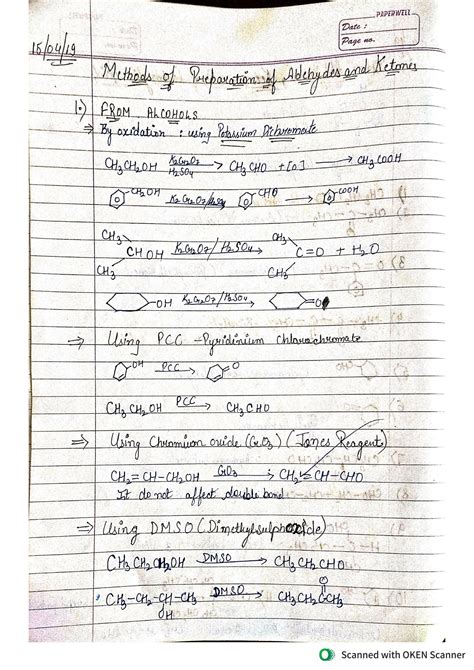 PAPERWELL
Date :
Page no.
15/04/19
Methods of Preparation of Aldehydes and Ketones
1.) FROM ALCOHOLS
⇒ By oxidation : using Potassium Dichromate
CH3CH2OH K2Cr2O7 / H2SO4 → CH3CHO + [O] → CH3COOH
CH2OH K2Cr2O7/H2SO4 → CHO → COOH
CH3 CH3
CHOH K2Cr2O7/H2SO4 → C=O + H2O
CH3 CH3
-OH K2Cr2O7/H2SO4 → =O
⇒ Using PCC - Pyridinium chlorochromate
OH PCC → O
CH3CH2OH PCC → CH3CHO
⇒ Using Chromium oxide (CrO3) (Jones Reagent)
CH2=CH-CH2OH CrO3 → CH2=CH-CHO
It do not affect double bond.
⇒ Using DMSO (Dimethylsulphoxide)
CH3CH2CH2OH DMSO → CH3CH2CHO
CH3-CH2-CH-CH3 DMSO → CH3CH2CCH3
OH O
Scanned with OKEN Scanner